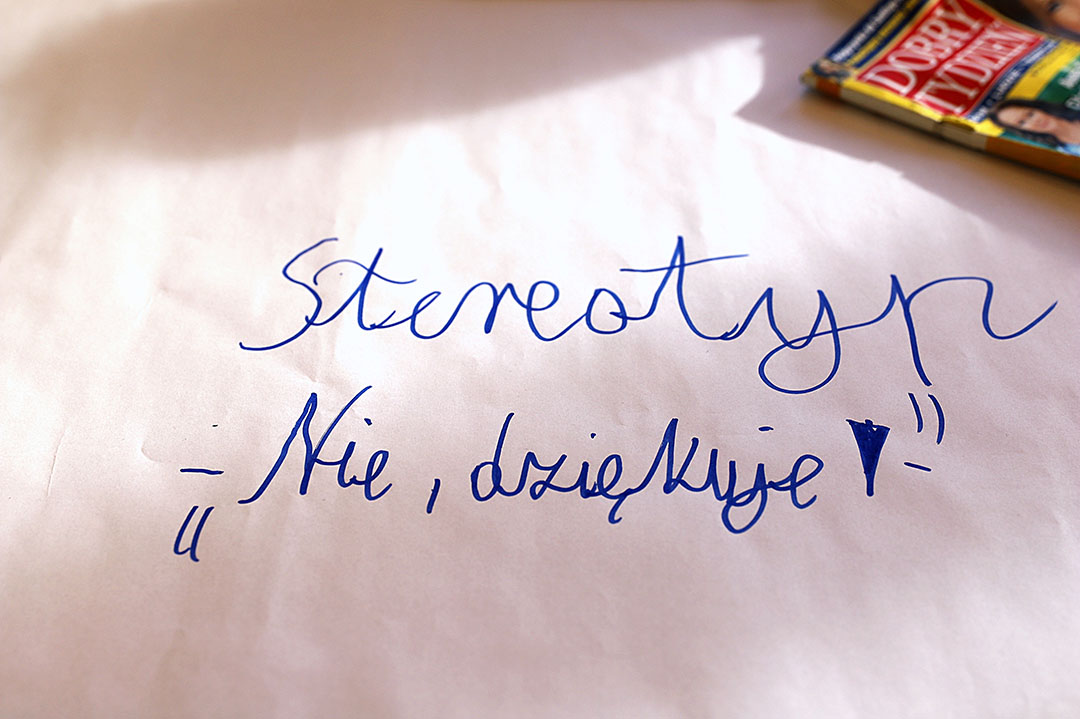 DOBRY
TYDZIEŃ
Stereotyp
- Nie, dziękuję!